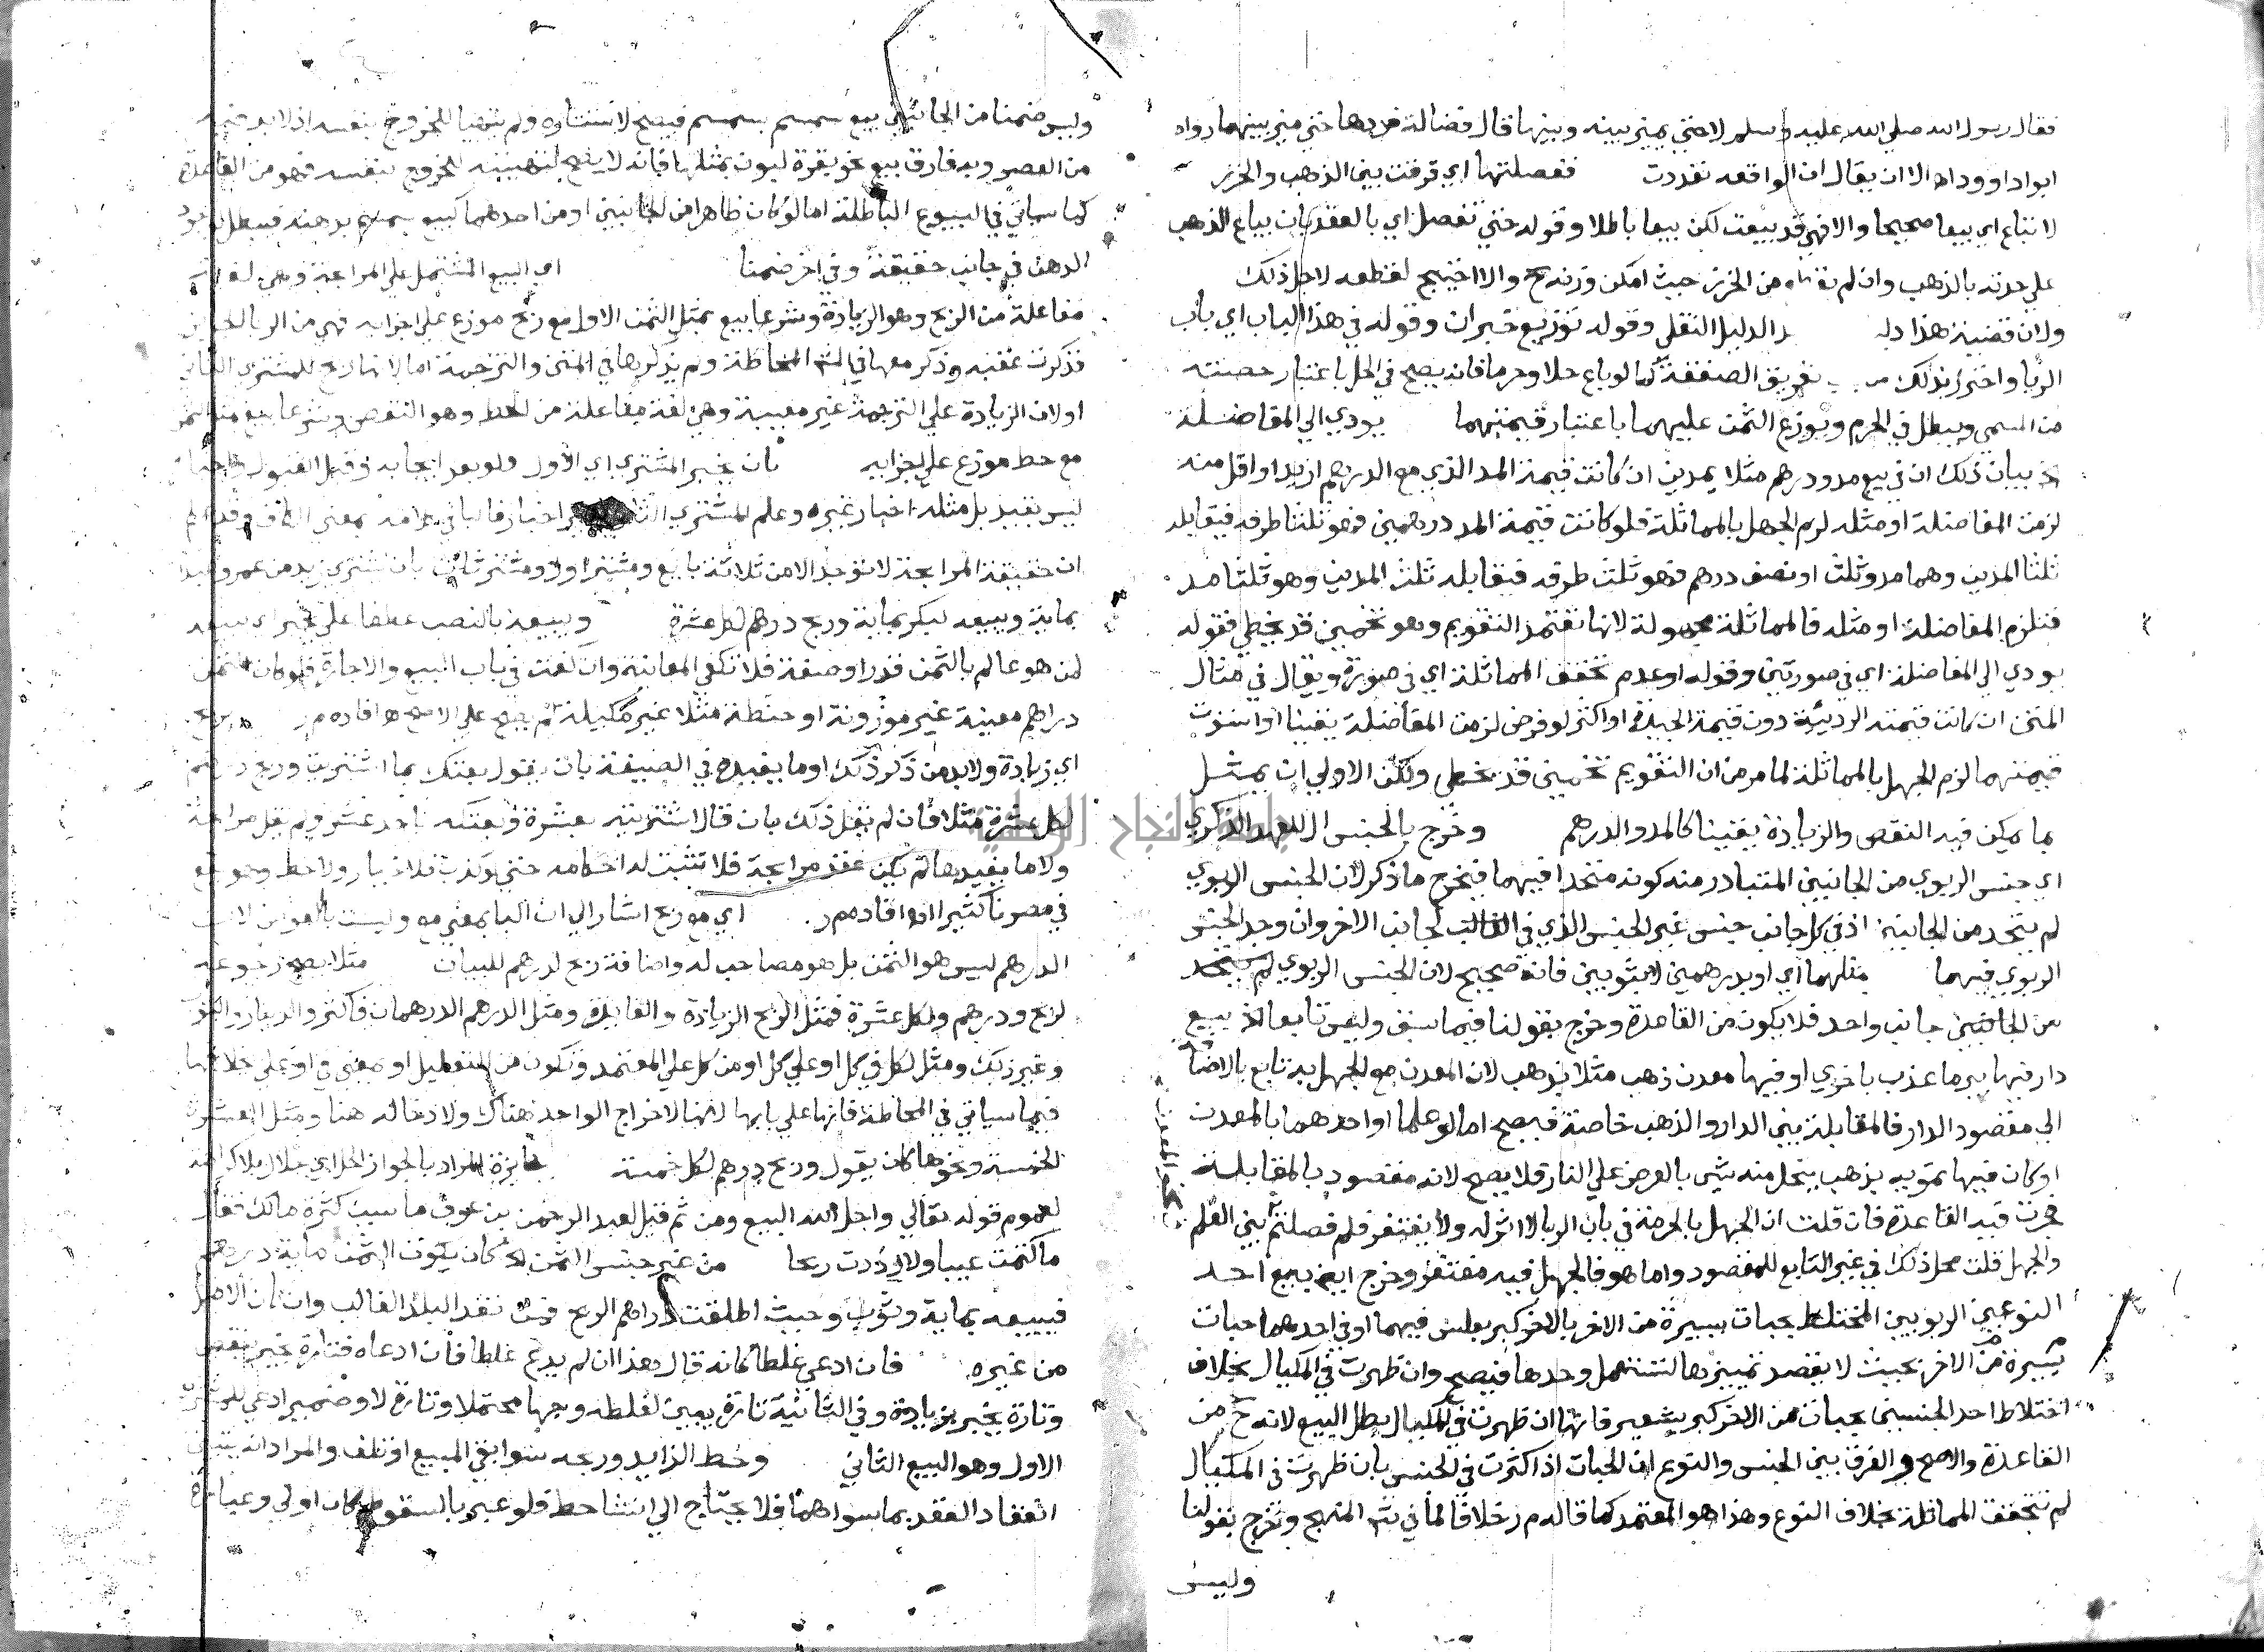 فقال رسول الله صلى الله عليه وسلم لا حتى يميز بينه وبينها قال فضالة فردها حتى ميز بينهما رواه
ابو داوود اه الا ان يقال ان الواقعه تعددت ففصلتها اي فرقت بين الذهب والخرز
لا تباع اي بيعا صحيحا والا فهي قد بيعت لكن بيعا باطلا وقوله حتى تفصل اي بالعقد بان يباع الذهب
على حدته بالذهب وان لم من الخرز حيث امكن وزنه ح والا احتيج لقطعه لاجل ذلك
ولان قضية هذا الدليل النقلي وقوله توزيع خبر ان وقوله في هذا الباب اي باب
الربا واحترز بذلك تفريق الصفقة كما لو باع حلا وحرما فانه يصح في الحل باعتبار حصته
من المسمى ويبطل في الحرم ويوزع الثمن عليهما باعتبار قيمتهما يودي الى المفاضلة
الخ بيان ذلك ان في بيع مد ودرهم مثلا بمدين ان كانت قيمة المد الذي مع الدرهم ازيد او اقل منه
لزمت المفاضلة او مثله لزم الجهل بالمماثلة فلو كانت قيمة المد درهمين فهو ثلثا طرفه فيقابله
ثلثا المدين وهما مد وثلث او نصف درهم فهو ثلث طرفه فيقابله ثلث المدين وهو ثلثا مد
فتلزم المفاضلة او مثله فالمماثلة مجهولة لانها تعتمد التقويم وهو تخمين قد يخطي فقوله
يودي الى المفاضلة اي في صورتين وقوله او عدم تحقق المماثلة اي في صورة ويقال في مثال
المتن ان كانت قيمته الرديئة دون قيمة الجيدة او اكثر لو فرض لزمت المفاضلة يقينا او استوت
قيمتهما لزم الجهل بالمماثلة لما مر من ان التقويم تخمين قد يخطي ولكن الاولى ان يمثل
بما يمكن فيه النقص والزيادة يقينا كالمد والدرهم وخرج بالجنس ال للعهد الذكري
اي جنس الربوي من الجانبين المتبادر منه كونه متحدا فيهما فيخرج ما ذكر لان الجنس الربوي
لم يتحد من الجانبين اذ في كل جانب جنس غير الجنس الذي في الجانب الاخر وان وجد الجنس
الربوي فيهما مثلهما اي او بدرهمين لا بثوبين فانه صحيح لان الجنس الربوي لم يتحد
من الجانبين جانب واحد فلا يكون من القاعدة وخرج بقولنا فيما سبق وليس تابعا الخ بيع
دار فيها بير ما عذب باخري او فيها معدن ذهب مثلا بذهب لان المعدن مع الجهل به تابع بالاضا
الى مقصود الدار فالمقابلة بين الدار والذهب خاصة فيصح اما لو علما او احدهما بالمعدن
او كان فيها تمويه بذهب يتحصل منه شي بالعرض على النار فلا يصح لانه مقصود بالمقابلة
فجرت فيه القاعدة فان قلت ان الجهل بالحرمة في باب الربا لا اثر له ولا يغتفر فلم فصلتم بين العلم
والجهل قلت محل ذلك في غير التابع للمقصود واما هو فالجهل فيه مغتفر وخرج ايضا بيع احد
النوعين الربويين المختلط بحبات يسيرة من الاخر بالاخر كبر بعلس فيهما او في احدهما حبات
يسيرة من الاخر بحيث لا يقصد تمييزها لتستعمل وحدها فيصح وان ظهرت في المكيال بخلاف
اختلاط احد الجنسين بحبات من الاخر كبر بشعير فانها ان ظهرت في المكيال بطل البيع لانه ح من
القاعدة والاصح والفرق بين الجنس والنوع ان الحبات اذا كثرت في الجنس بان ظهرت في المكيال
لم تتحقق المماثلة بخلاف النوع وهذا هو المعتمد كما قاله م ر خلافا لما في شرح المنهج وخرج بقولنا
وليس
وليس ضمنا من الجانبين بيع سمسم بسمسم فيصح لاستتاره ولم يتهيا للخروج بنفسه اذ لا بد فيه
من العصر وبه فارق بيع نحو بقرة لبون بمثلها فانه لا يصح لتهيئه للخروج بنفسه فهو من القاعدة
كما سياتي في البيوع الباطلة اما لو كان ظاهرا من الجانبين او من احدهما كبيع سمسم بدهنه فيبطل لوجود
الدهن في جانب حقيقة وفي اخر ضمنا اي البيع المشتمل على المرابحة وهي لغة
مفاعلة من الربح وهو الزيادة وشرعا بيع بمثل الثمن الاول مع ربح موزع على اجزايه فهي من الربا
فذكرت عقبه وذكر معها في الشرح المحاطة ولم يذكرها في المتن والترجمة اما لانها ربح للمشتري الثاني
او لان الزيادة على الترجمة غير معيبة وهي لغة مفاعلة من الحط وهو النقص وشرعا بيع بمثل الثمن
مع حط موزع على اجزايه بان يخبر المشتري اي الاول ولو بعد ايجابه وقبل القبول واخباره
ليس بقيد بل مثله اخبار غيره وعلم المشتري الثاني
ان حقيقة المرابحة لا توجد الا من ثلاثة بايع ومشتر اول ومشتر ثان بان يشتري زيد من عمرو عبدا
بماية ويبيعه لبكر بماية وربح درهم لكل عشرة ويبيعه بالنصب عطفا على يخبر اي يبيعه
لمن هو عالم بالثمن قدرا وصفة فلا تكفي المعاينة وان كفت في باب البيع والاجارة فلو كان الثمن
دراهم معينة غير موزونة او حنطة مثلا غير مكيلة لم يصح على الاصح افاده م ر بربح
اي زيادة ولا بد من ذكر ذلك او ما يفيده في الصيغة بان يقول بعتك بما اشتريت وربح درهم
لكل عشرة مثلا فان لم يقل ذلك بان قال اشتريته بعشرة وبعتكه باحد عشر ولم يقل مرابحة
ولا ما يفيدها لم يكن عقد مرابحة فلا تثبت له احكامه حتى لو كذب فلا خيار ولا حط وهو يقع
في مصرنا كثيرا افاده م ر اي مع ربح اشار الى ان البا بمعنى مع وليست بالعوض لان
الدرهم ليس هو الثمن بل هو مصاحب له واضافة ربح لدرهم للبيان مثلا يصح رجوعه
لربح ودرهم ولكل عشرة فمثل الربح الزيادة والفايدة ومثل الدرهم الدرهمان فاكثر والدينار والثوب
وغير ذلك ومثل لكل في كل او على كل او من كل على المعتمد وتكون من للتعليل او بمعنى في او على خلافها
فيما سياتي في المحاطة فانها على بابها لانها لاخراج الواحد هناك ولادخاله هنا ومثل العشرة
الخمسة ونحوها كان يقول وربح درهم لكل خمسة جايزة المراد بالجواز الحل اي حلال بلا كراهة
لعموم قوله تعالى واحل الله البيع ومن ثم قيل لعبد الرحمن بن عوف ما سبب كثرة مالك فقال
ما كتمت عيبا ولا رددت ربحا من غير جنس الثمن الخ كان يكون الثمن ماية درهم
فيبيعه بماية وثوب وحيث اطلقت دراهم الربح فمن نقد البلد الغالب وان كان الاصل
من غيره فان ادعي غلطا كانه قال هذا ان لم يدع غلطا فان ادعاه فتارة يخبر بنقص
وتارة يخبر بزيادة وفي الثانية تارة يبين لغلطه وجها محتملا وتارة لا وضمير ادعي للمشتري
الاول وهو البيع الثاني وحط الزايد وربحه سوا بقي المبيع او تلف والمراد انه يتبين
انعقاد العقد بما سواهما فلا يحتاج الى انشا حط فلو عبر بالسقوط لكان اولى وعبارة
جامعة النجاح الوطنية